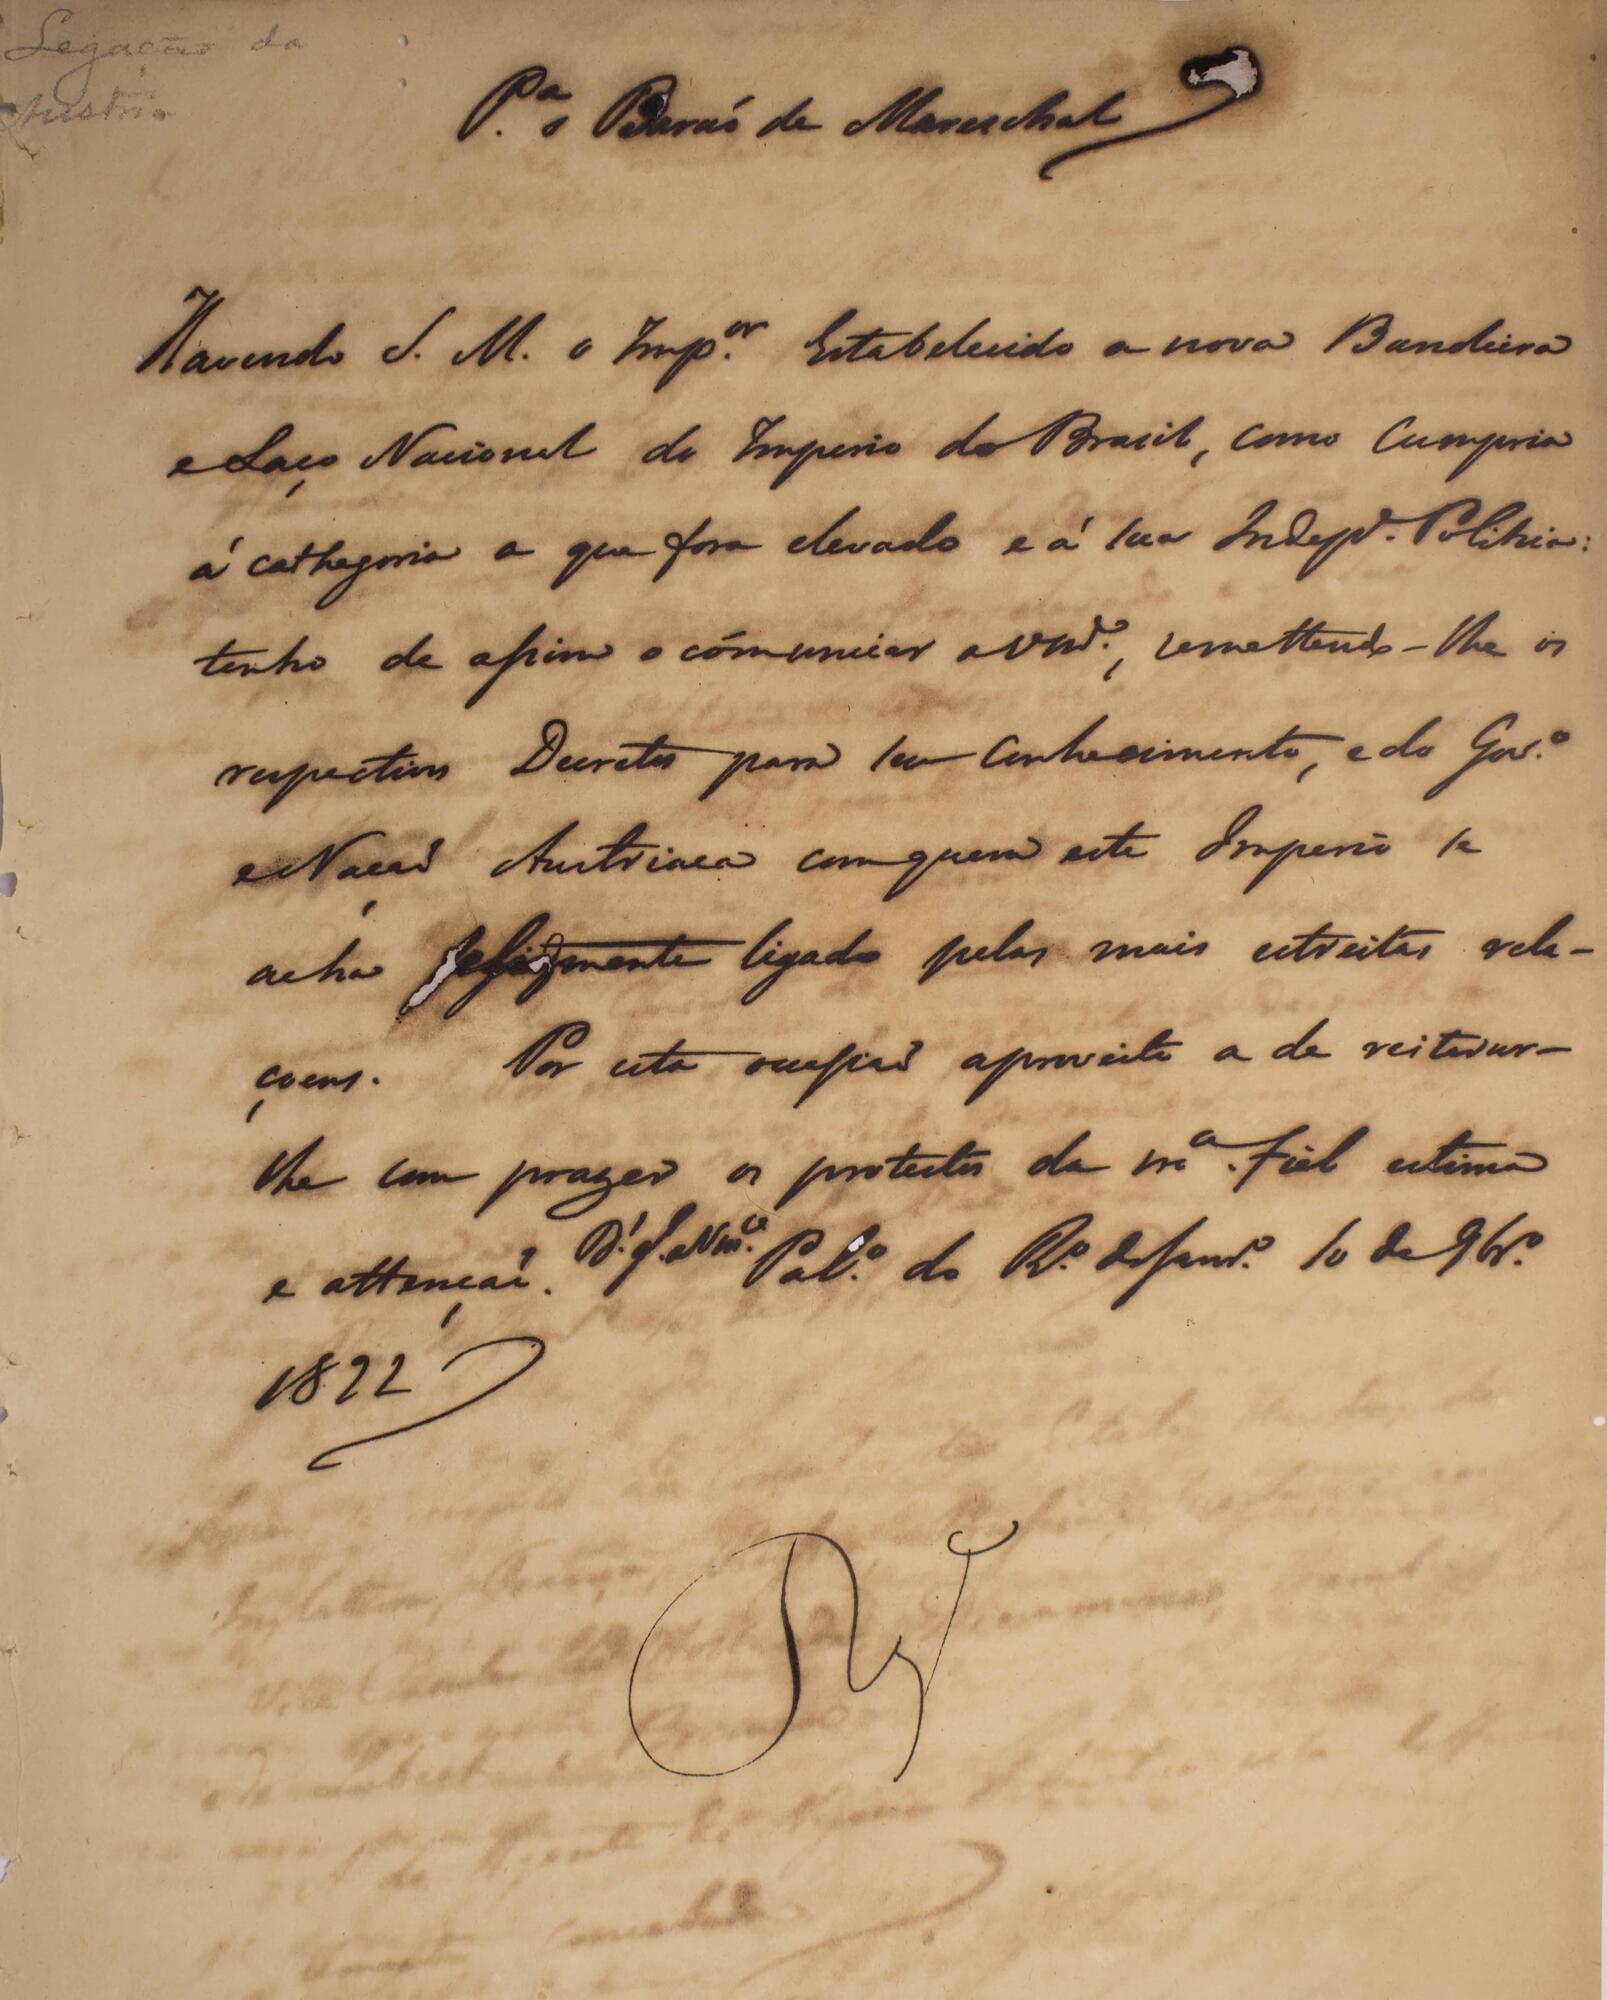 Legação da
Austria
P.ª o Baraõ de Mareschal
Havendo S. M. o Imp.or Estabelecido a nova Bandeira
e Laço Nacional do Imperio do Brasil, como Cumpria
á cathegoria a que fora elevado e á sua Indep.ª Politica:
tenho de assim o cómunicar a VM.ce, remettendo-lhe os
respectivos Decretos para seu Conhecimento, e do Gov.º
e Naçaõ Austriaca com quem este Imperio se
acha felizmente ligado pelas mais estreitas rela-
çoens. Por esta occasiaõ aproveito a de reiterar-
lhe com prazer os protestos da m.ª fiel estima
e attençaõ. D.s G.e a Vm.ce Pal.º do R.º de Janr.º 10 de 9br.º
1822